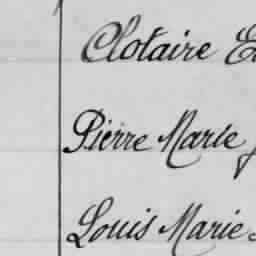 Clotaire
Pierre Marie
Louis Marie